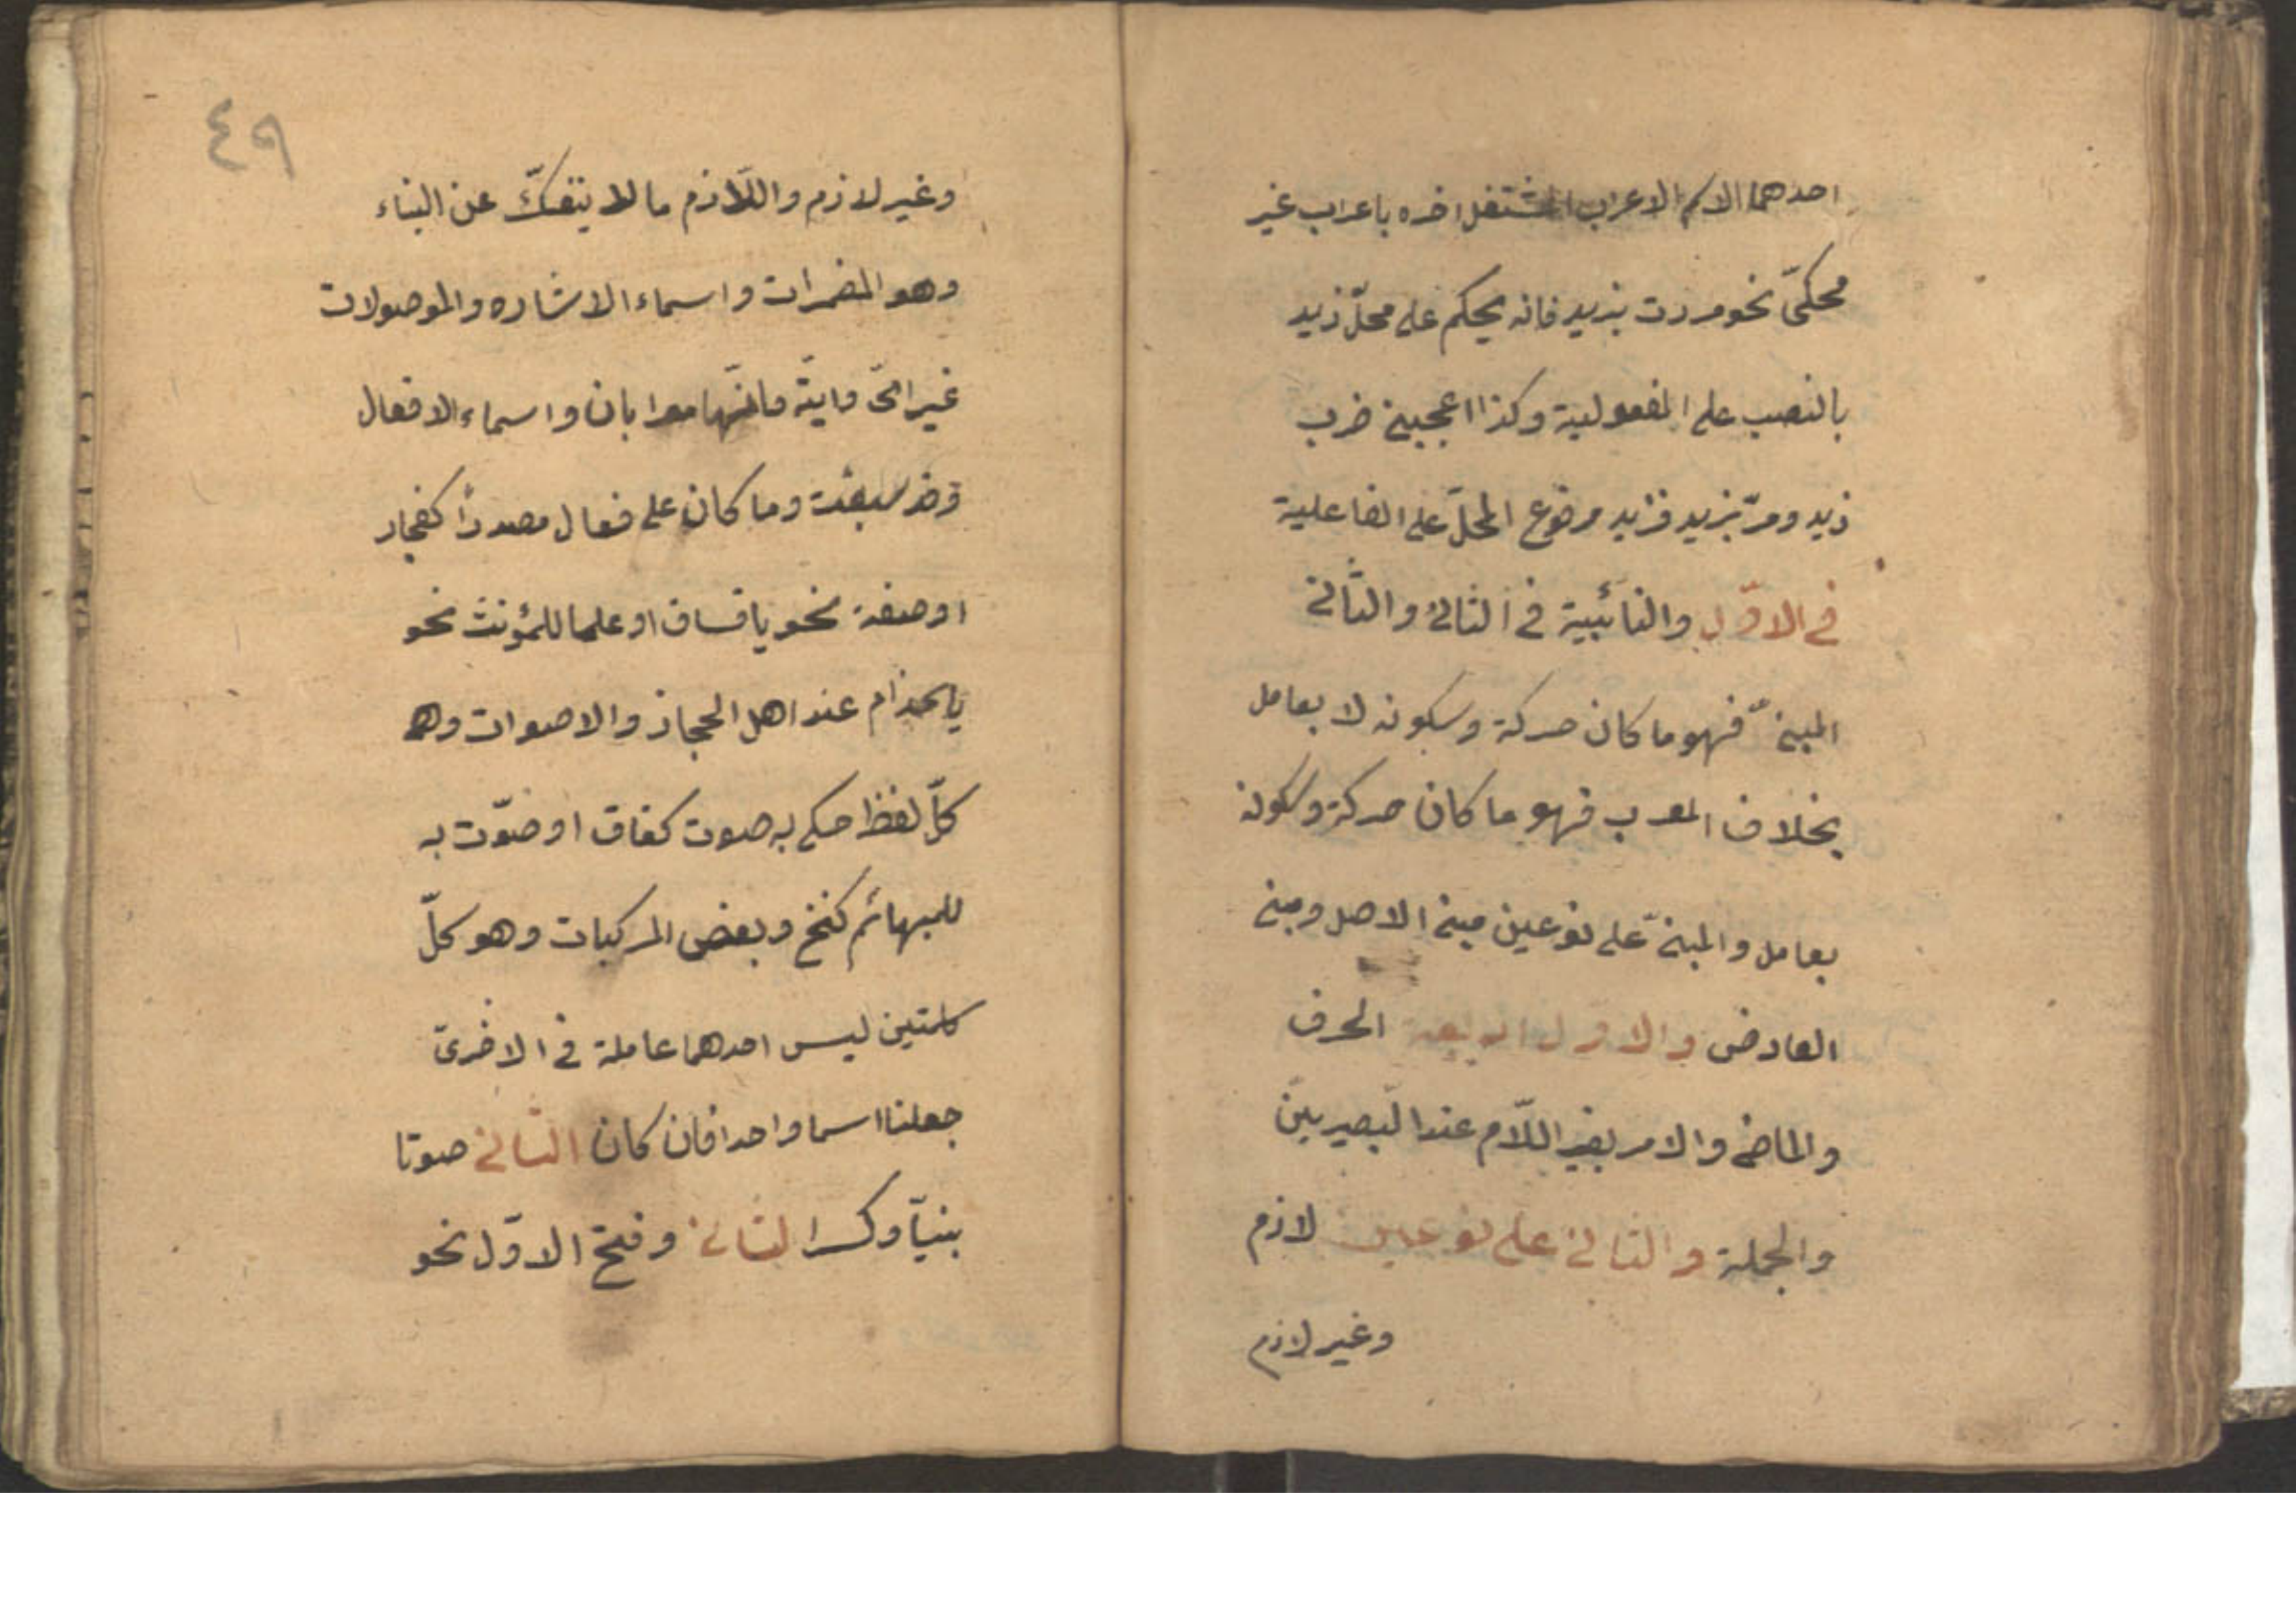 احدهما الاسم الاعراب المشتغل اخره باعراب غير
محكىّ نحو مررت بزيد فانه يحكم على محلّ زيد
بالنصب على المفعولية وكذا اعجبنى ضرب
زيد ومرّ بزيد فزيد مرفوع المحلّ على الفاعلية
فى الاوّل والنائبية فى الثانى والثّانى
المبنىّ فهو ما كان حركة وسكونه لا بعامل
بخلاف المعرب فهو ما كان حركة وسكونه
بعامل والمبنىّ على نوعين مبنى الاصل ومبنى
العارض والاول اربعة الحرف
والماضى والامر بغير اللّام عند البصريين
والجملة والثانى على نوعين لازم
وغير لازم
٤٩
وغير لازم واللّازم ما لا ينفكّ عن البناء
وهو المضمرات واسماء الاشاره والموصولات
غير اىّ وايّة فانّهما معرابان واسماء الافعال
وقد سبقت وما كان على فعال مصدراً كفجار
او صفة نحو يا فساق او علما للمؤنث نحو
يا حذام عند اهل الحجاز والاصوات وهو
كلّ لفظ حكى به صوت كغاق او صوّت به
للبهائم كنخ وبعض المركبات وهو كلّ
كلمتين ليس احدهما عاملة فى الاخرى
جعلنا اسما واحدا فان كان الثانى صوتا
بنيّا وكسر الثانى وفتح الاوّل نحو